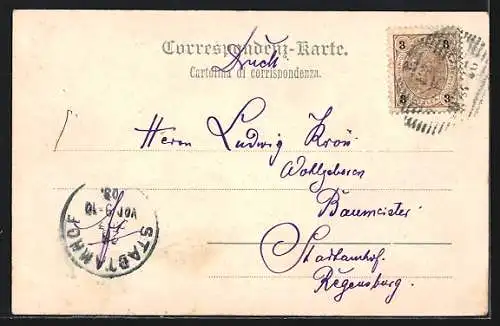 Correspondenz-Karte.
Druck
Cartolina di corrispondenza.
3 3
3 3
Herrn Ludwig Kroiß
Wohlgeboren
Baumeister
Stadtamhof.
Regensburg.
STADTAMHOF
VOR 9-10
03.